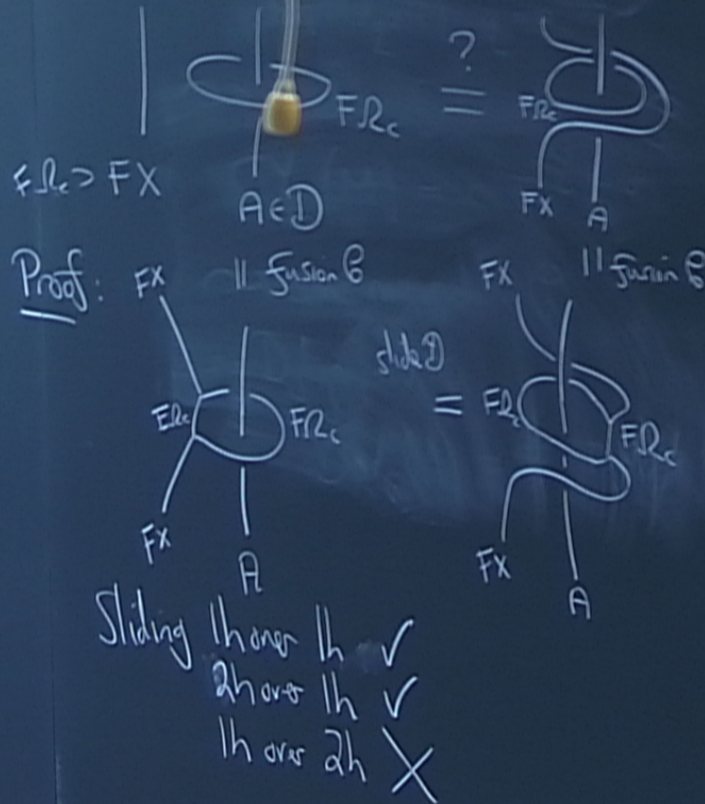 ?
=
FΩc
FΩc
FΩc > FX
A∈D
FX
A
Proof:
FX
|| fusion C
FX
|| fusion C
slide D
=
FΩc
FΩc
FΩc
FΩc
FX
A
FX
A
Sliding 1h over 1h ✓
2h over 1h ✓
1h over 2h X